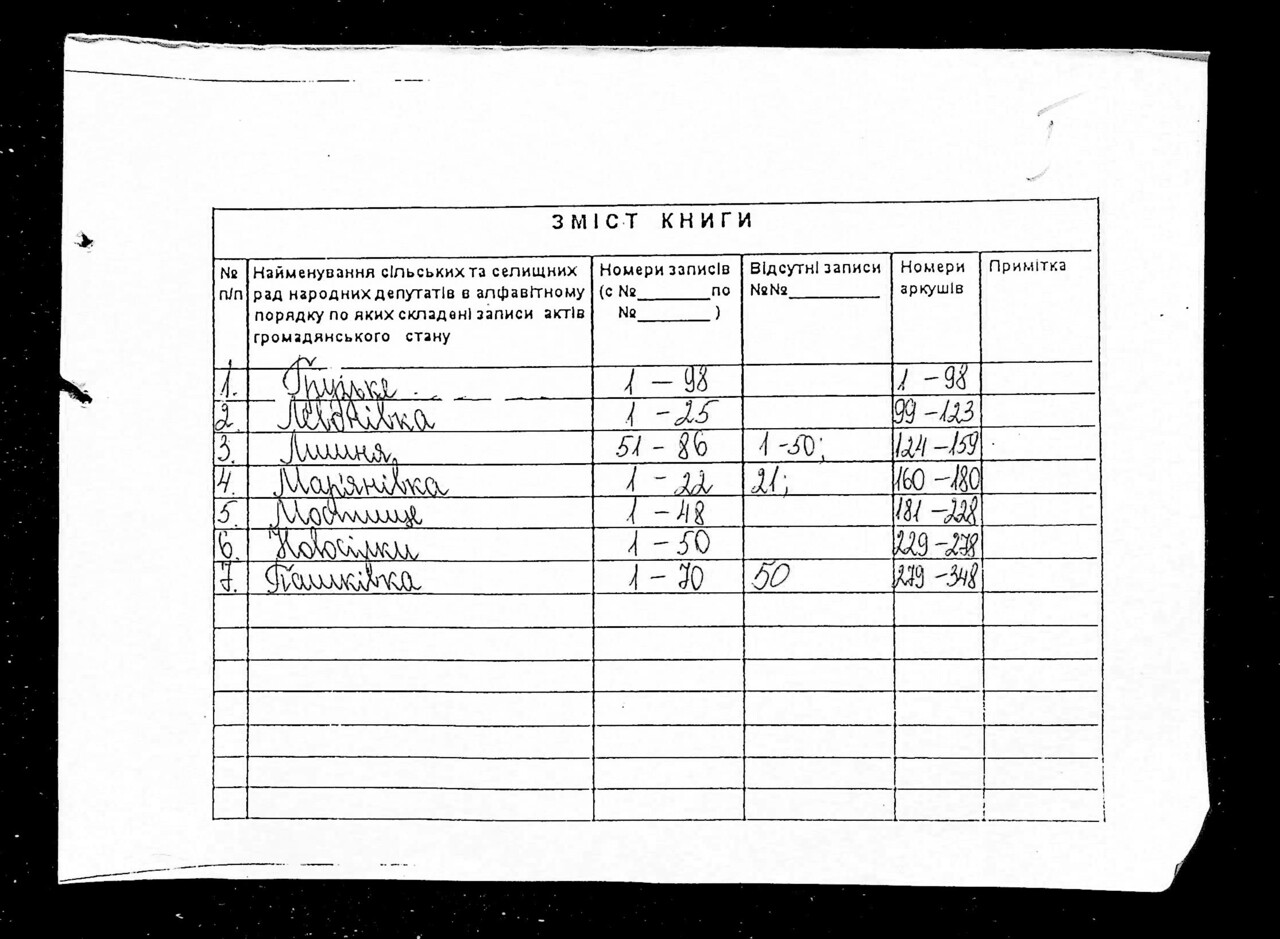 ЗМІСТ КНИГИ
№ п/п Найменування сільських та селищних рад народних депутатів в алфавітному порядку по яких складені записи актів громадянського стану Номери записів (с №________по №________) Відсутні записи №№__________ Номери аркушів Примітка
1. Грузьке 1 – 98 1 – 98
2. Левонівка 1 – 25 99 – 123
3. Лишня 51 – 86 1 – 50; 124 – 159
4. Мар'янівка 1 – 22 21; 160 – 180
5. Мостище 1 – 48 181 – 228
6. Новосілки 1 – 50 229 – 278
7. Пашківка 1 – 70 50 279 – 348